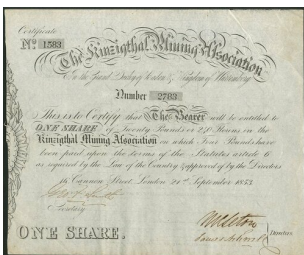 Certificate
No. 1583
The Kinzigthal Mining Association
In the Grand Duchy of Baden & Kingdom of Wurtemberg
Number 2783
This is to Certify that The Bearer will be entitled to
ONE SHARE of Twenty Pounds or 240 Florins in the
Kinzigthal Mining Association on which Four Pounds have
been paid upon the terms of the Statutes article 6
as required by the Law of the Country & approved of by the Directors
Cannon Street, London 21st September 1853
Secretary
Directors
ONE SHARE.